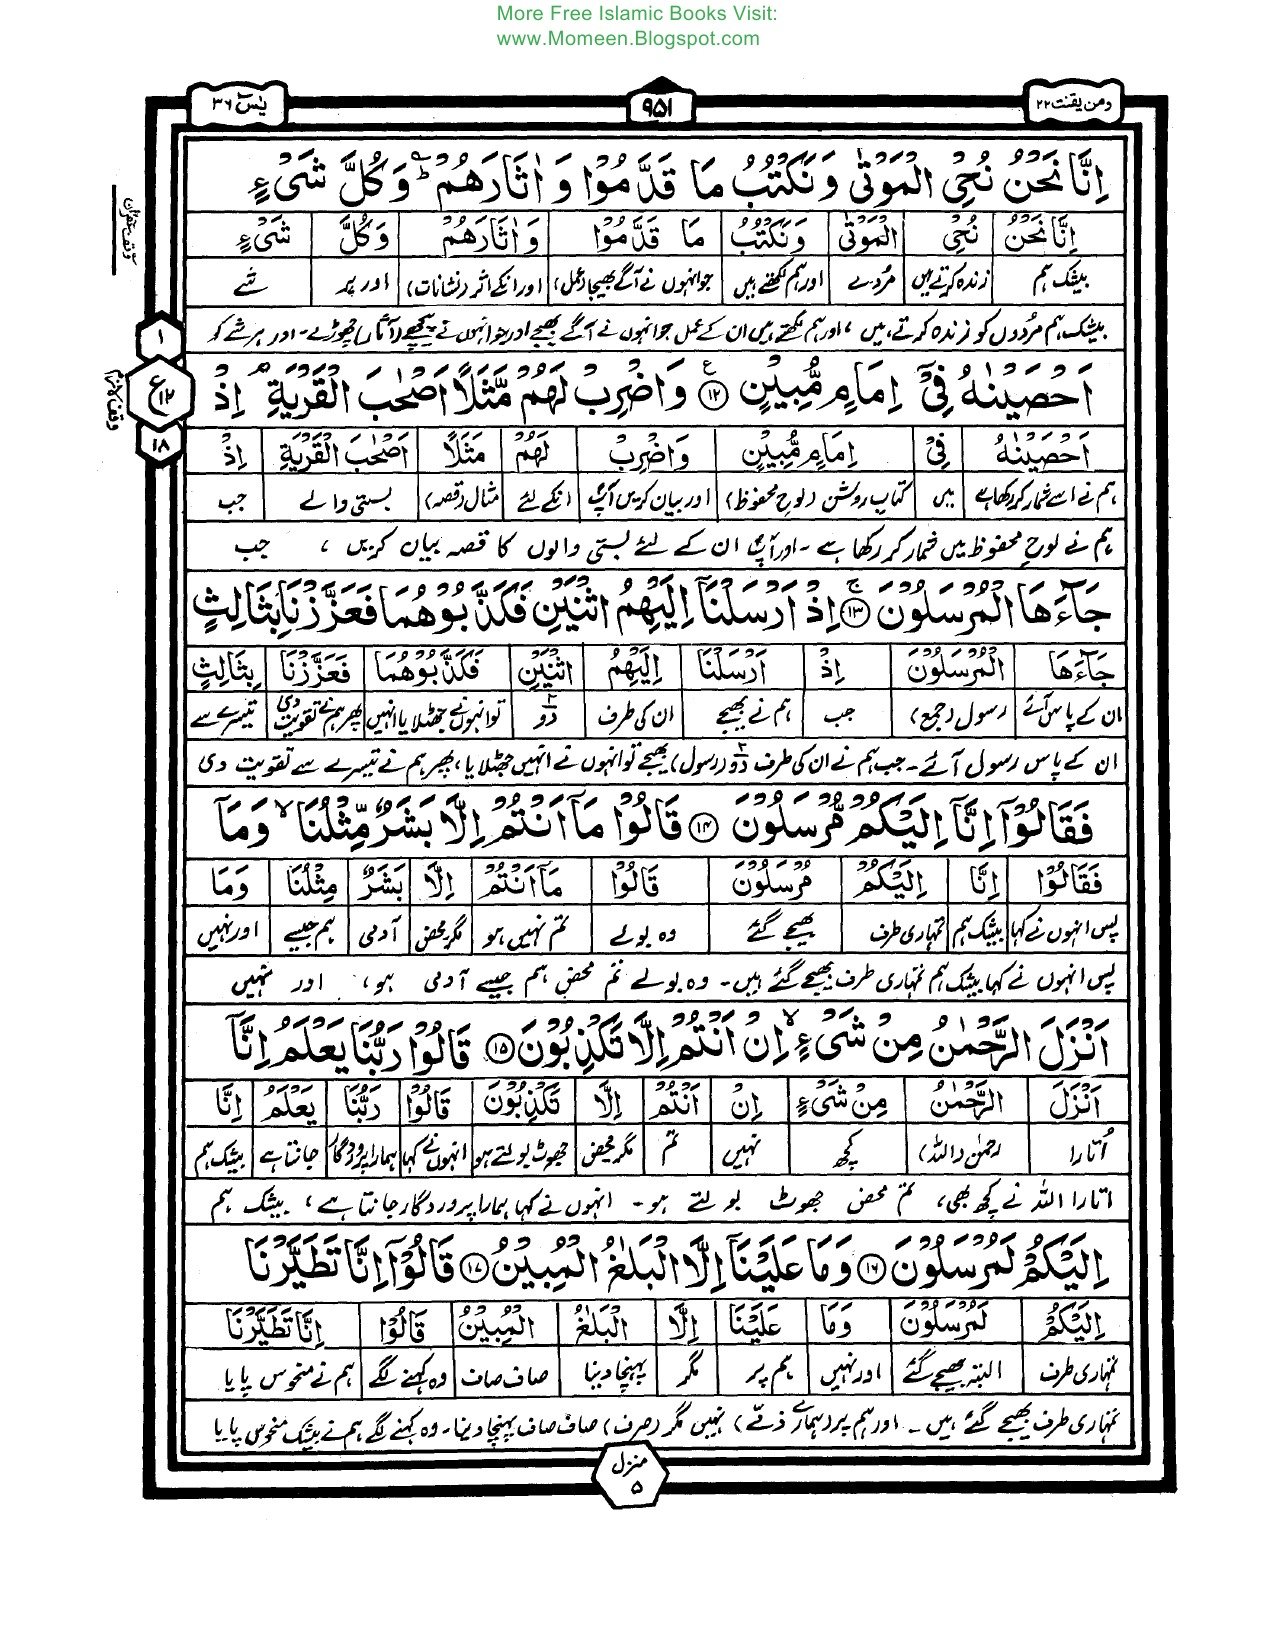 More Free Islamic Books Visit:
www.Momeen.Blogspot.com
ومن یقنت ۲۲
۹۵۱
یٰسٓ ۳۶
اِنَّا نَحْنُ نُحْیِ الْمَوْتٰی وَنَكْتُبُ مَا قَدَّمُوْا وَ اٰثَارَهُمْ ؕ وَكُلَّ شَیْءٍ
اِنَّا نَحْنُ نُحْیِ الْمَوْتٰی وَنَكْتُبُ مَا قَدَّمُوْا وَاٰثَارَهُمْ وَكُلَّ شَیْءٍ
بیشک ہم زندہ کرتے ہیں مُردے اور ہم لکھتے ہیں جو انہوں نے آگے بھیجا (عمل) اور انکے اثر (نشانات) اور ہر شے
بیشک ہم مُردوں کو زندہ کرتے ہیں ، اور ہم لکھتے ہیں ان کے عمل جو انہوں نے آگے بھیجے اور جو انہوں نے پیچھے (آثار) چھوڑے۔ اور ہر شے کو
۱
ع ۱۲
۱۸
وقف لازم
وقف غفران
اَحْصَیْنٰهُ فِیْۤ اِمَامٍ مُّبِیْنٍ ۱۲ وَاضْرِبْ لَهُمْ مَّثَلًا اَصْحٰبَ الْقَرْیَةِ ۘ اِذْ
اَحْصَیْنٰهُ فِیْ اِمَامٍ مُّبِیْنٍ وَاضْرِبْ لَهُمْ مَثَلًا اَصْحٰبَ الْقَرْیَةِ اِذْ
ہم نے اسے شمار کر رکھا ہے میں کتابِ روشن (لوحِ محفوظ) اور بیان کریں آپؐ انکے لئے مثال (قصہ) بستی والے جب
ہم نے لوحِ محفوظ میں شمار کر رکھا ہے ۔ اور آپؐ ان کے لئے بستی والوں کا قصہ بیان کریں ، جب
جَآءَهَا الْمُرْسَلُوْنَ ۱۳ اِذْ اَرْسَلْنَاۤ اِلَیْهِمُ اثْنَیْنِ فَكَذَّبُوْهُمَا فَعَزَّزْنَا بِثَالِثٍ
جَآءَهَا الْمُرْسَلُوْنَ اِذْ اَرْسَلْنَا اِلَیْهِمُ اثْنَیْنِ فَكَذَّبُوْهُمَا فَعَزَّزْنَا بِثَالِثٍ
ان کے پاس آئے رسول (جمع) جب ہم نے بھیجے ان کی طرف دو۲ تو انہوں نے جھٹلایا انہیں پھر ہم نے تقویت دی تیسرے سے
ان کے پاس رسول آئے ۔ جب ہم نے ان کی طرف دو۲ (رسول) بھیجے تو انہوں نے انہیں جھٹلایا، پھر ہم نے تیسرے سے تقویت دی
فَقَالُوْۤا اِنَّاۤ اِلَیْكُمْ مُّرْسَلُوْنَ ۱۴ قَالُوْا مَاۤ اَنْتُمْ اِلَّا بَشَرٌ مِّثْلُنَا ۙ وَمَاۤ
فَقَالُوْا اِنَّا اِلَیْكُمْ مُرْسَلُوْنَ قَالُوْا مَاۤ اَنْتُمْ اِلَّا بَشَرٌ مِثْلُنَا وَمَا
پس انہوں نے کہا بیشک ہم تمہاری طرف بھیجے گئے وہ بولے تم نہیں ہو مگر محض آدمی ہم جیسے اور نہیں
پس انہوں نے کہا بیشک ہم تمہاری طرف بھیجے گئے ہیں۔ وہ بولے تم محض ہم جیسے آدمی ہو، اور نہیں
اَنْزَلَ الرَّحْمٰنُ مِنْ شَیْءٍ ۙ اِنْ اَنْتُمْ اِلَّا تَكْذِبُوْنَ ۱۵ قَالُوْا رَبُّنَا یَعْلَمُ اِنَّاۤ
اَنْزَلَ الرَّحْمٰنُ مِنْ شَیْءٍ اِنْ اَنْتُمْ اِلَّا تَكْذِبُوْنَ قَالُوْا رَبُّنَا یَعْلَمُ اِنَّا
اُتارا رحمٰن (اللہ) کچھ نہیں تم مگر محض جھوٹ بولتے ہو انہوں نے کہا ہمارا پروردگار جانتا ہے بیشک ہم
اتارا اللہ نے کچھ بھی، تم محض جھوٹ بولتے ہو ۔ انہوں نے کہا ہمارا پروردگار جانتا ہے ، بیشک ہم
اِلَیْكُمْ لَمُرْسَلُوْنَ ۱۶ وَمَا عَلَیْنَاۤ اِلَّا الْبَلٰغُ الْمُبِیْنُ ۱۷ قَالُوْۤا اِنَّا تَطَیَّرْنَا
اِلَیْكُمْ لَمُرْسَلُوْنَ وَمَا عَلَیْنَا اِلَّا الْبَلٰغُ الْمُبِیْنُ قَالُوْا اِنَّا تَطَیَّرْنَا
تمہاری طرف البتہ بھیجے گئے اور نہیں ہم پر مگر پہنچا دینا صاف صاف وہ کہنے لگے ہم نے منحوس پایا
تمہاری طرف بھیجے گئے ہیں ۔ اور ہم پر (ہمارے ذمّے) نہیں مگر (صرف) صاف صاف پہنچا دینا۔ وہ کہنے لگے ہم نے بیشک منحوس پایا
منزل ۵